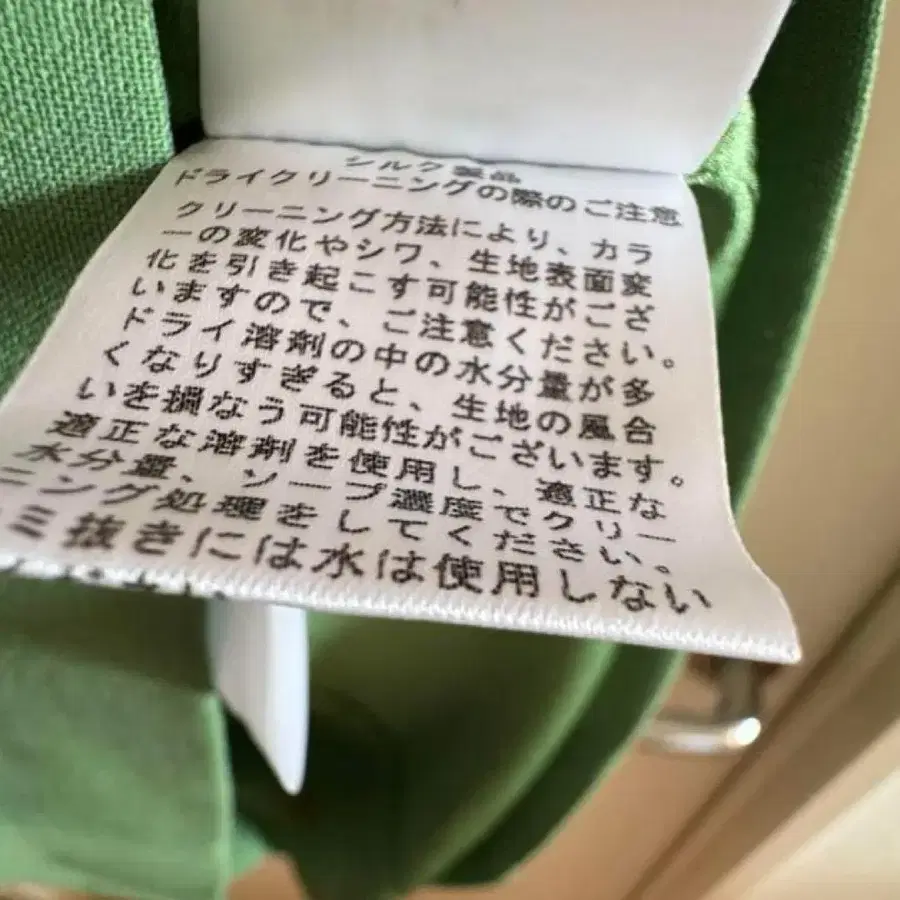 シルク製品
ドライクリーニングの際のご注意
クリーニング方法により、カラ
ーの変化やシワ、生地表面変
化を引き起こす可能性がござ
いますので、ご注意ください。
ドライ溶剤の中の水分量が多
くなりすぎると、生地の風合
いを損なう可能性がございます。
適正な溶剤を使用し、適正な
水分量、ソープ濃度でクリー
ニング処理をしてください。
ミ抜きには水は使用しない